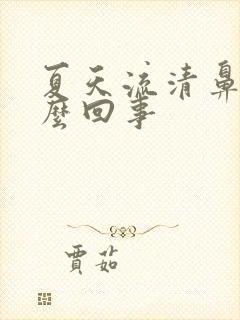 夏天流清鼻
麼回事
賈茹